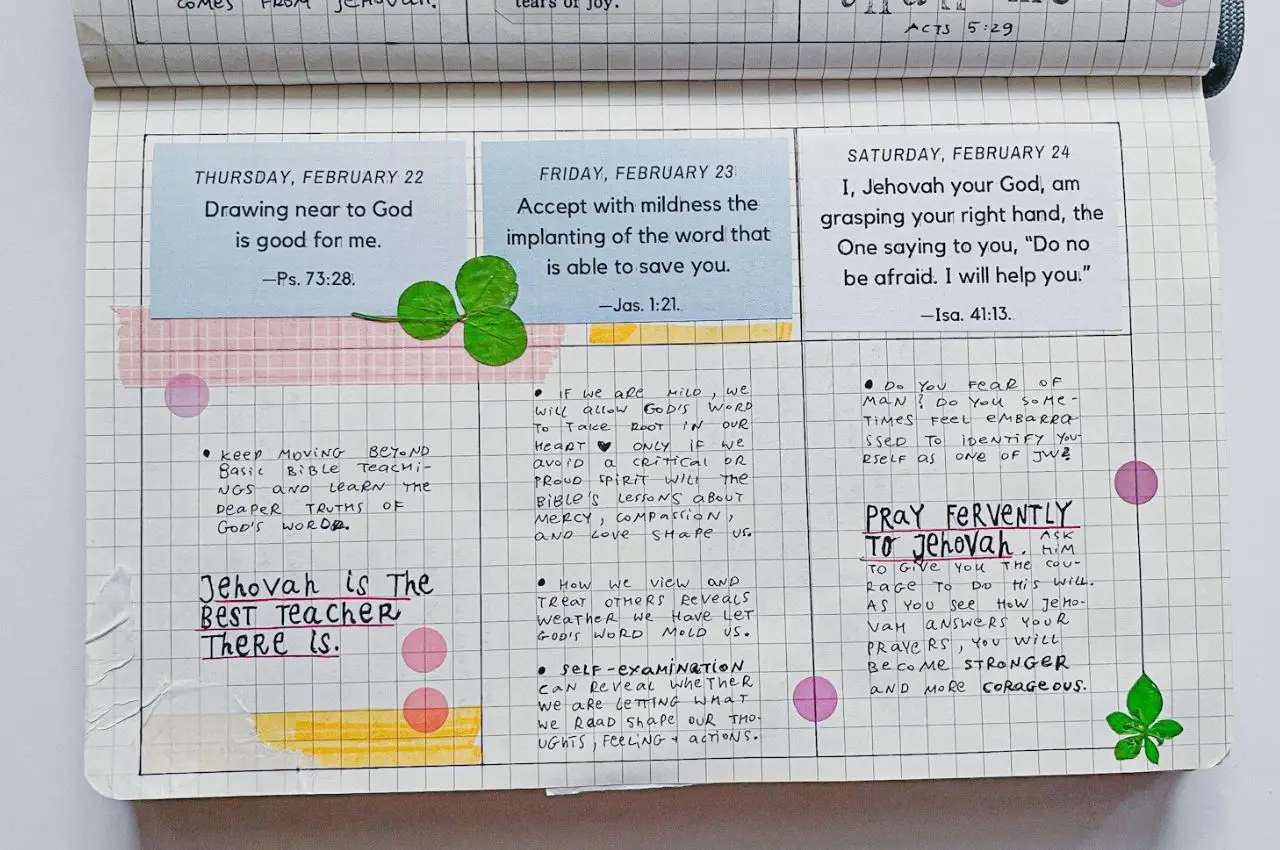 COMES FROM JEHOVAH.
tears of joy.
ACTS 5:29
THURSDAY, FEBRUARY 22
Drawing near to God
is good for me.
—Ps. 73:28.
• KEEP MOVING BEYOND
BASIC BIBLE TEACHI-
NGS AND LEARN THE
DEAPER TRUTHS OF
GOD'S WORD.
JEHOVAH IS THE
BEST TEACHER
THERE IS.
FRIDAY, FEBRUARY 23
Accept with mildness the
implanting of the word that
is able to save you.
—Jas. 1:21.
• IF WE ARE MILD, WE
WILL ALLOW GOD'S WORD
TO TAKE ROOT IN OUR
HEART ♥ ONLY IF WE
AVOID A CRITICAL OR
PROUD SPIRIT WILL THE
BIBLE'S LESSONS ABOUT
MERCY, COMPASSION,
AND LOVE SHAPE US.
• HOW WE VIEW AND
TREAT OTHERS REVEALS
WEATHER WE HAVE LET
GOD'S WORD MOLD US.
• SELF-EXAMINATION
CAN REVEAL WHETHER
WE ARE LETTING WHAT
WE READ SHAPE OUR THO-
UGHTS, FEELING + ACTIONS.
SATURDAY, FEBRUARY 24
I, Jehovah your God, am
grasping your right hand, the
One saying to you, “Do no
be afraid. I will help you.”
—Isa. 41:13.
• DO YOU FEAR OF
MAN? DO YOU SOME-
TIMES FEEL EMBARRA-
SSED TO IDENTIFY YOU-
RSELF AS ONE OF JW?
PRAY FERVENTLY
TO JEHOVAH. ASK
HIM
TO GIVE YOU THE COU-
RAGE TO DO HIS WILL.
AS YOU SEE HOW JEHO-
VAH ANSWERS YOUR
PRAYERS, YOU WILL
BECOME STRONGER
AND MORE CORAGEOUS.